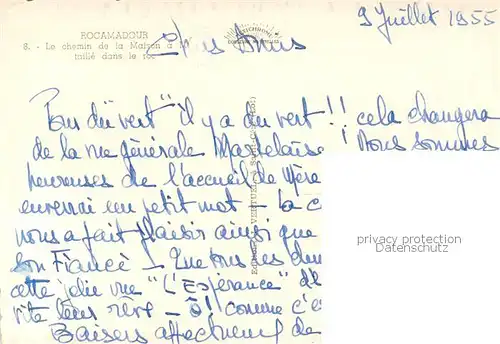 ROCAMADOUR
8. - Le chemin de la Maison à
taillé dans le roc
9 Juillet 1955
Chers Amis
Pour du vert "il y a du vert!! cela changera
de la vue générale Marseillaise ! Nous sommes
heureuses de l'accueil de Mère
enverrai un petit mot - La c
nous a fait plaisir ainsi que
son Fiancé - Que tous les deux
cette jolie vue "L'Espérance" d
vite leurs rêve - Ô! comme c'e
Baisers affectueux de
privacy protection
Datenschutz